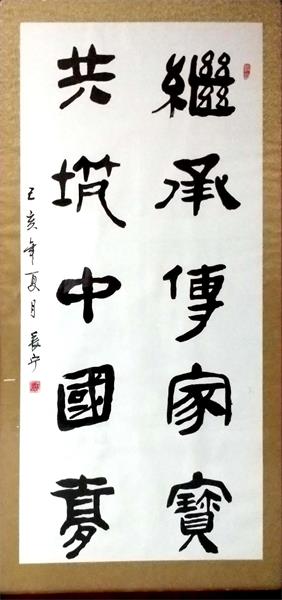 繼承傳家寶
共中國夢
己亥年夏月 長宁